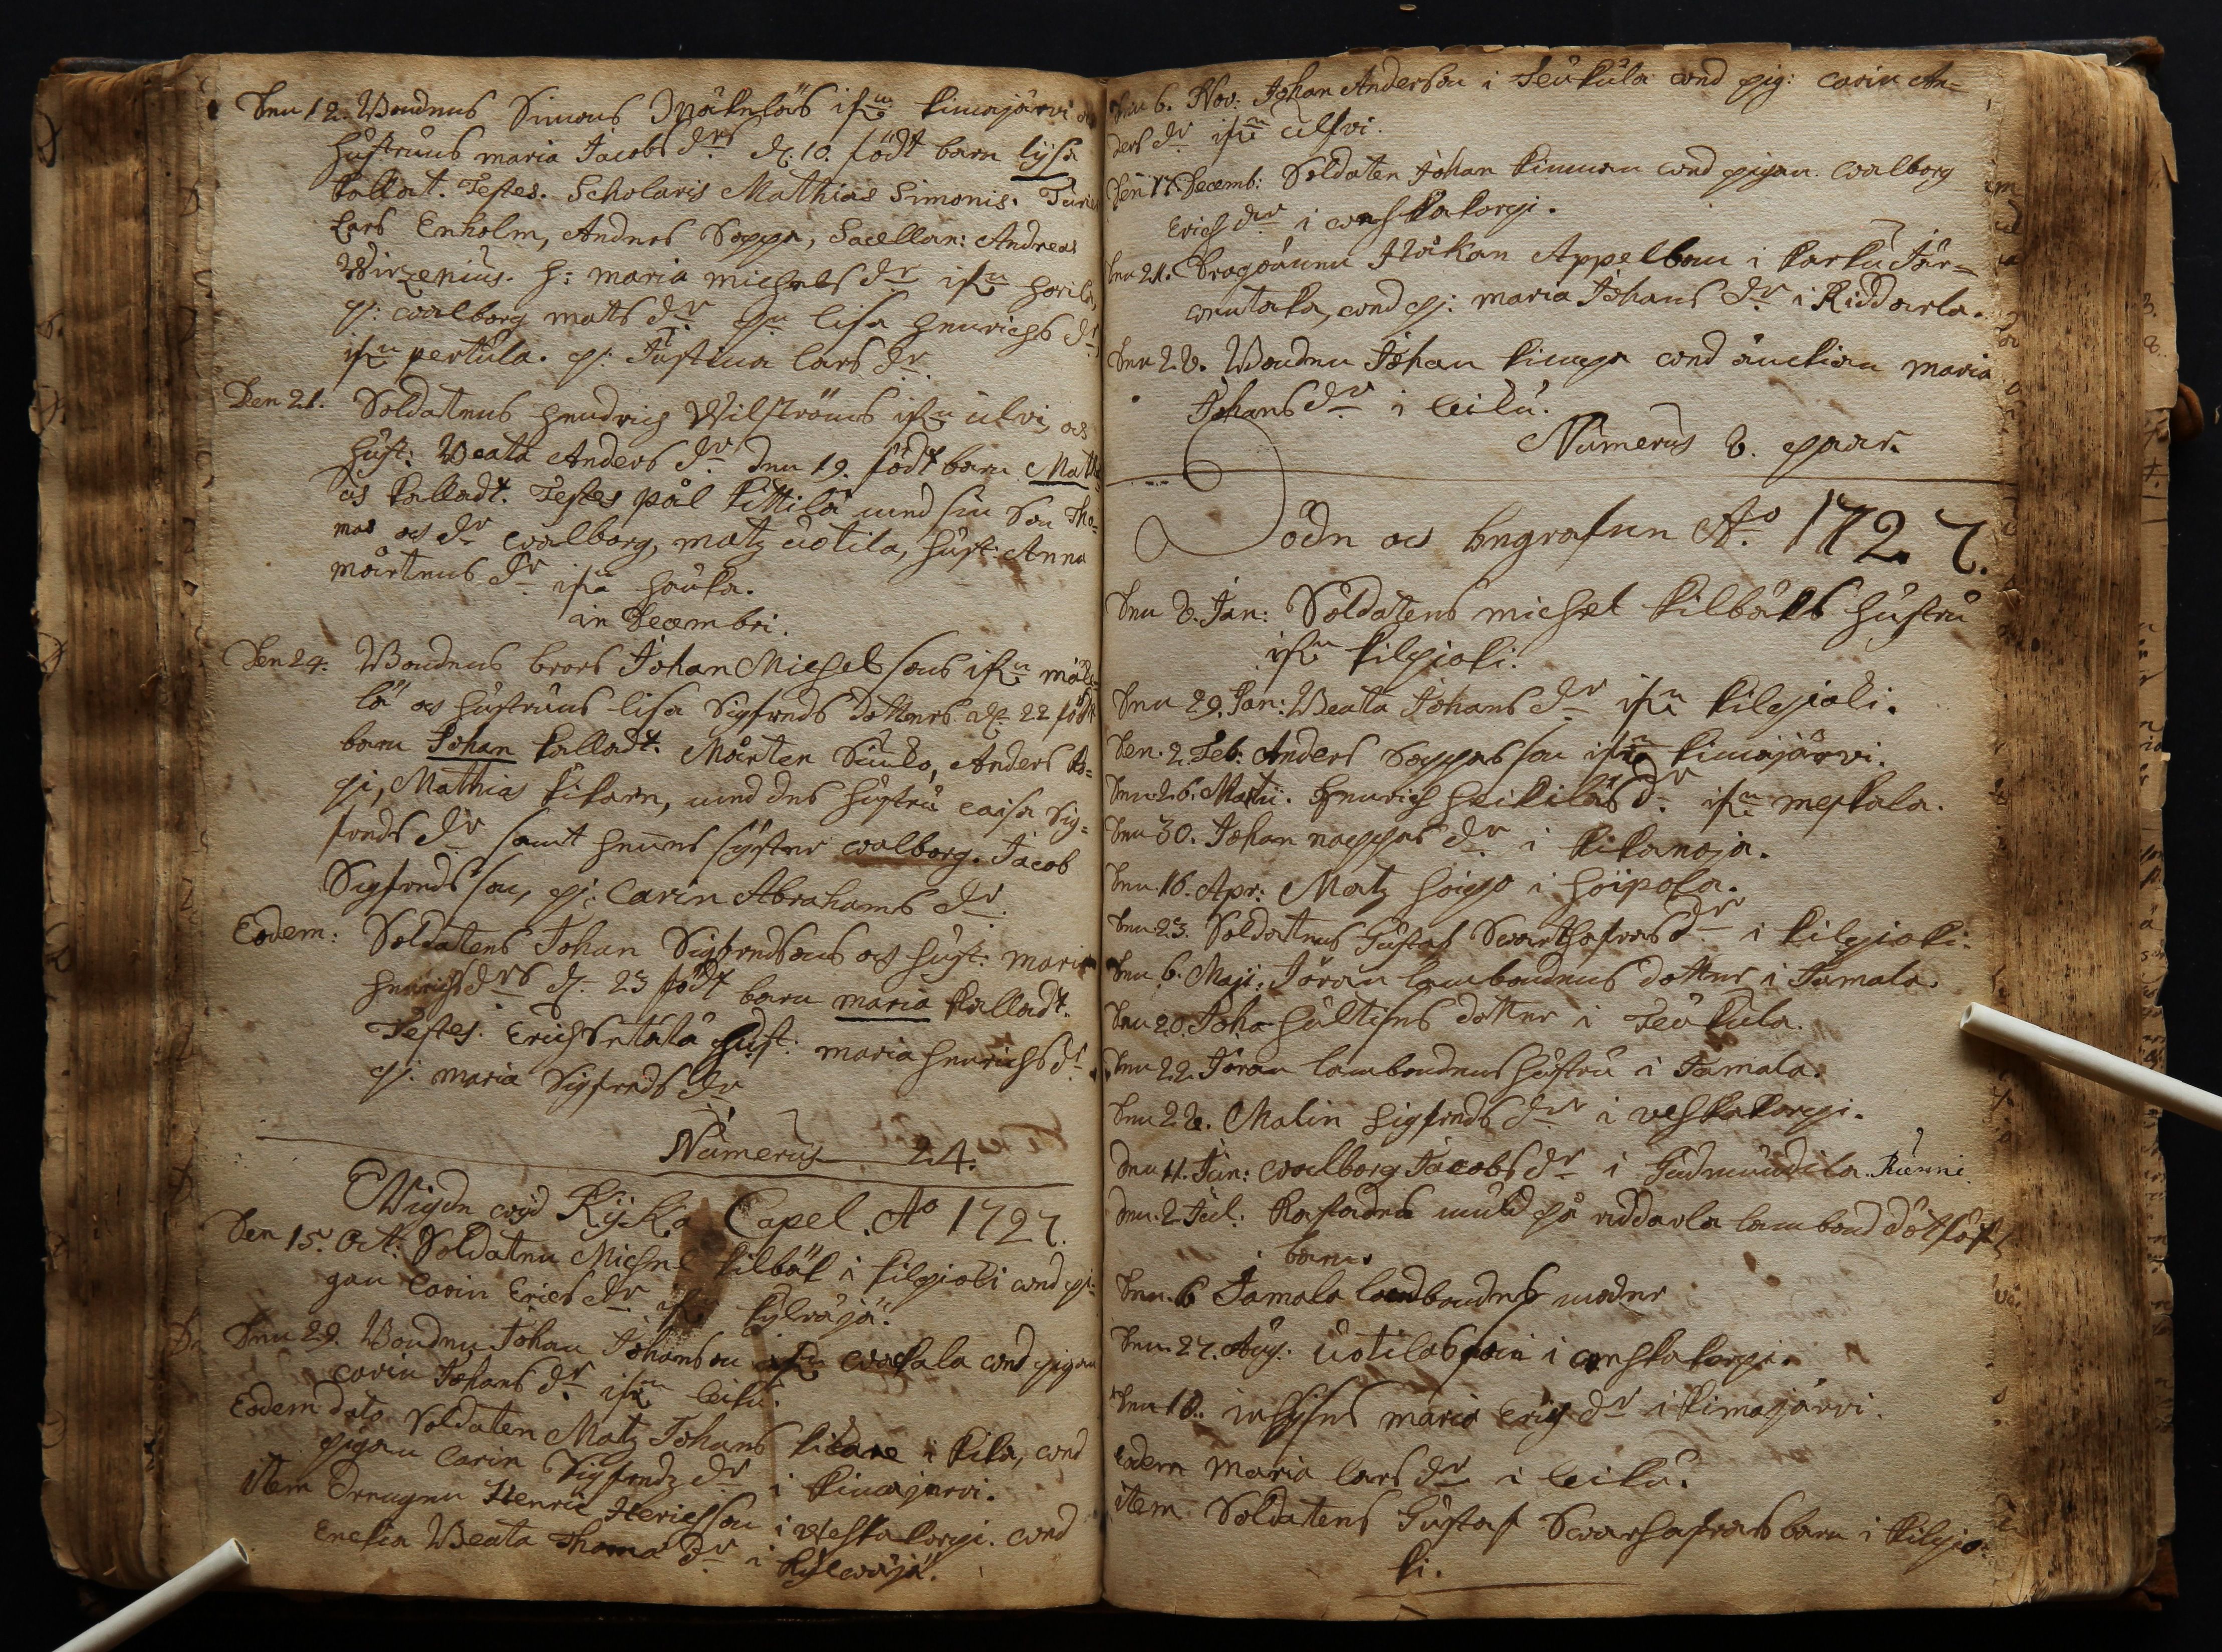 Den 12. Bondens Simons Mäkeläs ifrn kimajärvi
hustruns maria Jacobs drs d. 10. födt barn lijsa
kallat. Testes. Scholaris Mathias Simonis.
Lars Enholm, Anders Soppa, Sacellan: Andreas
Wirzenius. h: maria michels dr ifrn
p: walborg mats dr pn lisa henrichs dr
ifrn pertula. p: Justina lars dr.
Den 21. Soldatens hendrich Wilströms ifrn ulvi, och
hust: Beata Anders dr den 19. födt barn Mathi
as kalladt. Testes pål kittilä med sin Son Tho-
mas och dr walborg, matz uotila, hust: Anna
mårtens dr ifrn hauka.
in Decembri.
Den 24. Bondens brors Johan Michelsons ifrn mäke-
lä och hustruns lisa Sigfreds dotters d. 22 födt
barn Johan kalladt. Mårten Simko, Anders
pi, Mathias kikarn, med des hustru caisa Sig-
freds dr samt hennes syster walborg. Jacob
Sigfredsson, p: Carin Abrahams dr.
Eodem: Soldatens Johan Sigfredsons och hust: maria
henrichs drs d. 23 födt barn maria kalladt.
Testes. Erich hust: maria henrichs dr
p: maria Sigfreds dr
Numerus 24.
Wigde wijd Kijka Capel. Ao 1727.
Den 15. Oct: Soldaten Michel kilbäk i kilpioki med pi-
gan Carin Erics dr ifrn kylväjä.
Den 29. Bonden Johan Johanson ifrn med pigan
carin Johans dr ifrn leiku.
Eodem dato Soldaten Matz Johans kikare i kika, med
pigan Carin Sigfredz dr i kimajervi.
item Drengen Henric Hericsson i weskakorpi. med
Enckia Beata Thoma dr i kylwäjä.
Den 6. Nov: Johan Anderson i Teukula med pig: carin An-
ders dr ifrn ulfvi.
Den 17. Decemb: Soldaten Johan kinman med pigan walborg
Erich dr i weskakorpi.
Den 21. Dragounen Håkan Appelbom i karku Jär-
wentaka, med p: maria Johans dr i Riddarla.
Den 28. Bonden Johan kimpa med änckian maria
Johans dr i leiku.
Numerus 8. paar.
Döde och begrafne Ao 1727.
Den 8. Jan: Soldatens michel kilbäks hustru
ifrn kilpioki.
Den 29. Jan: Beata Johans dr ifrn kilpioki.
Den. 2. Feb: Anders Soppas son ifrn kimajärvi.
Den 26. Martii. Henrich heikiläs dr ifrn meskala.
Den 30. Johan noppas dr i kikanoja.
Den 16. Apr: Matz hoipo i hoipola.
Den 23. Soldatens Gustaf Swarthafras dr i kilpioki.
Den 6. Maji: Jöran lambondens dotter i Tamala.
Den 20. Joha hultins dotter i Teukula.
Den 22. Jöran lambondens hustru i Tamala.
Den 28. Malin Sigfreds dr i weskakorpi.
Den 11. Jun: walborg Jacobs dr i Gudmundila. Rünni.
Den. 2. Jul: kastades muld på riddarla lambond dötfött
barn
Den. 6 Tamala landbondes moder
Den. 27. Aug: uotilas i weskakorpi.
Den 18. inhyses maria Erichs dr i kimajärvi.
eodem Maria lars dr i leiku.
item Soldatens Gustaf Swarhafras barn i kilpio-
ki.